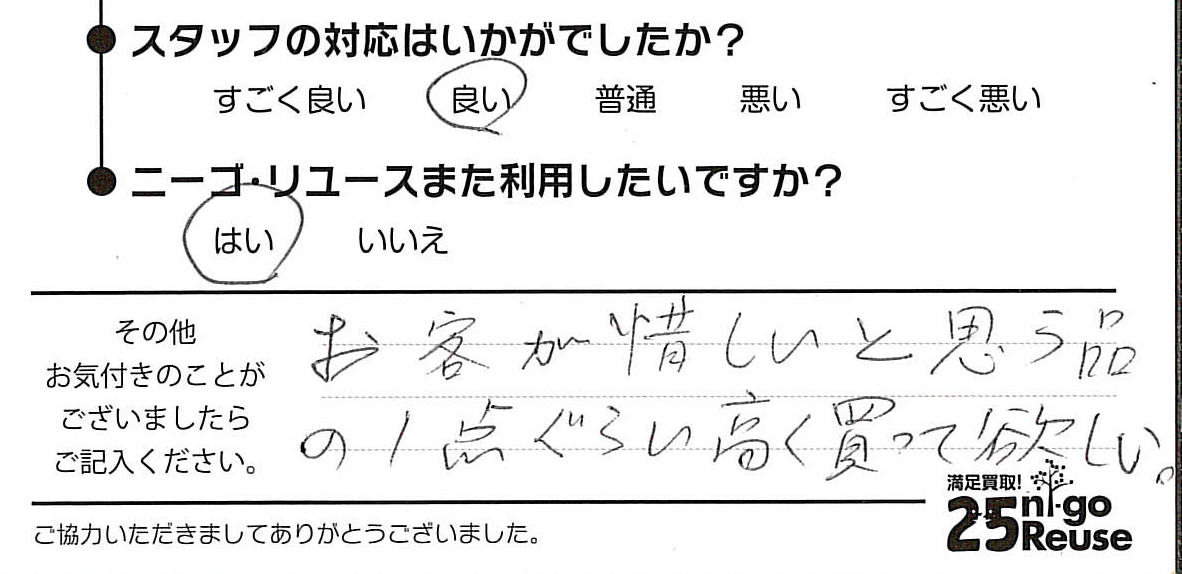 スタッフの対応はいかがでしたか？
すごく良い 良い 普通 悪い すごく悪い
ニーゴ・リユースまた利用したいですか？
はい いいえ
その他
お気付きのことが
ございましたら
ご記入ください。
お客が惜しいと思う品
の1点ぐらい高く買って欲しい。
満足買取!
25 ni-go
Reuse
ご協力いただきましてありがとうございました。